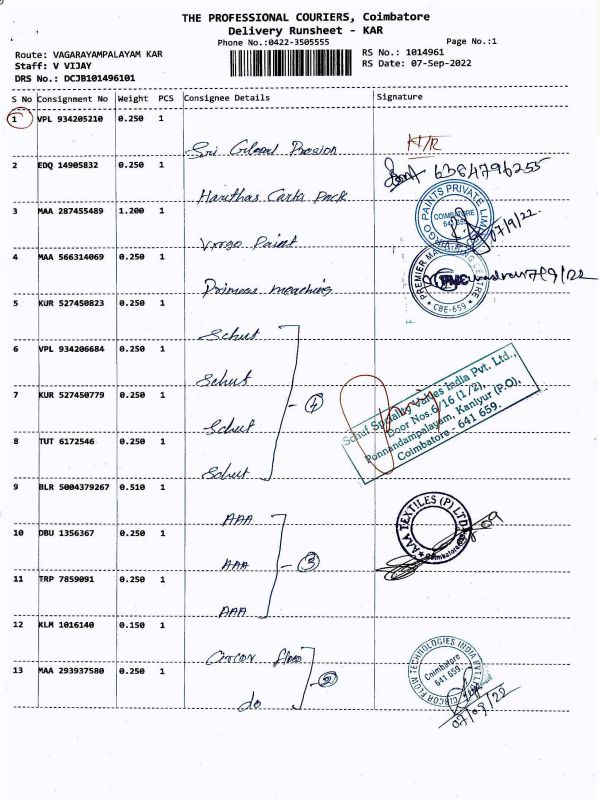 THE PROFESSIONAL COURIERS, Coimbatore
Delivery Runsheet - KAR
Phone No.:0422-3505555
Page No.:1
Route: VAGARAYAMPALAYAM KAR
Staff: V VIJAY
DRS No.: DCJB101496101
RS No.: 1014961
RS Date: 07-Sep-2022
S No Consignment No Weight PCS Consignee Details Signature
1 VPL 934205210 0.250 1
Sri Global H/R
2 EDQ 14905832 0.250 1
6364796255
Harithas Carto Pack
3 MAA 287455489 1.200 1
VIRGO PAINTS PRIVATE LIMI
COIMBATORE
641 659
07/9/22
Virgo Paint
4 MAA 566314069 0.250 1
PREMIER MA CENTRE
CBE-659
7/9/22
5 KUR 527450823 0.250 1
Schut
6 VPL 934206684 0.250 1
Schut
7 KUR 527450779 0.250 1
4
Schut
8 TUT 6172546 0.250 1
Schut
Schuf Speciality Valves India Pvt. Ltd.,
Door Nos.6/16 (1/2),
Ponnandampalayam, Kaniyur (P.O),
Coimbatore - 641 659.
9 BLR 5004379267 0.510 1
AAA
10 DBU 1356367 0.250 1
AAA
3
11 TRP 7859091 0.250 1
AAA
AAA TEXTILES (P) LTD
Coimbatore
12 KLM 1016140 0.150 1
Circor flow
13 MAA 293937580 0.250 1
2
do
CIRCOR FLOW TECHNOLOGIES INDIA PVT.LTD
Coimbatore
641 659
07/09/22